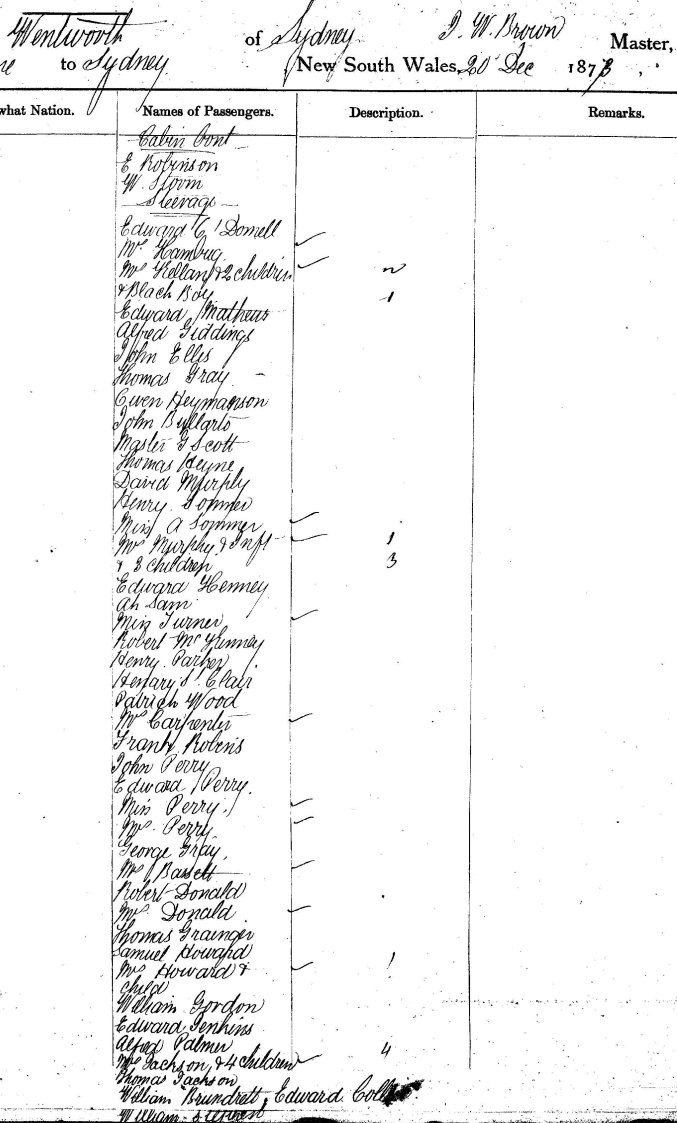 Wentworth of Sydney. J. W. Brown Master,
to Sydney New South Wales, 20 Dec 1873
what Nation. Names of Passengers. Description. Remarks.
Cabin Cont
E Robinson
W. Storm
Steerage
Edward O'Donnell
Mrs Hambug
Mrs Kellan & 2 children 2
& Black Boy 1
Edward Mathews
Alfred Giddings
John Ellis
Thomas Gray
Owen Heymanson
John Bullarto
Master G Scott
Thomas Heyne
David Murphy
Henry Sommer
Miss A Sommer
Mrs Murphy & Inft 1
& 3 children 3
Edward Henney
Ah Sam
Miss Turner
Robert McKenney
Henry Parker
Henary St Clair
Patrick Wood
Mrs Carpenter
Frank Robens
John Perry
Edward Perry.
Miss Perry.
Mrs Perry
George Gray.
Mrs Bassett
Robert Donald
Mrs Donald
Thomas Grainger
Samuel Howard
Mrs Howard & 1
child
William Gordon
Edward Jenkins
Alfred Palmer
Mrs Jackson & 4 children 4
Thomas Jackson
William Brundrett, Edward
William Stephen